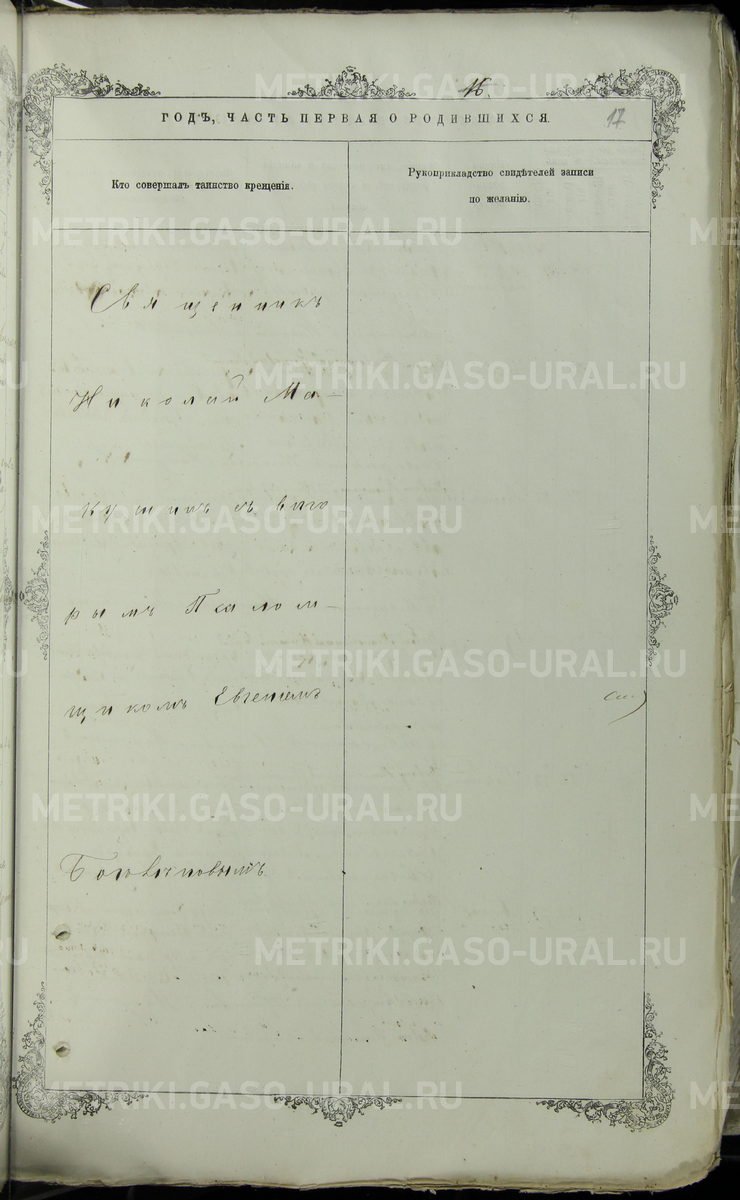 16.
ГОДЪ, ЧАСТЬ ПЕРВАЯ О РОДИВШИХСЯ.
17
Кто совершалъ таинство крещенія.
Рукоприкладство свидѣтелей записи
по желанію.
Священникъ
Николай Ма-
кушинъ съ вто
рымъ Псалом-
щикомъ Евгеніемъ
METRIKI.GASO-URAL.RU